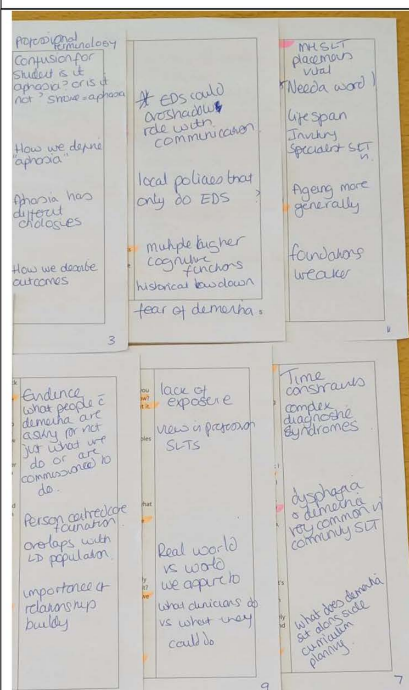 Professional
terminology
Confusion for
student is it
aphasia? or is it
not? Stroke = aphasia
How we define
"aphasia"
Aphasia has
different
etiologies
How we describe
outcomes
3
* EDS could
overshadow
role with
communication
local policies that
only do EDS ?
multiple higher
cognitive
functions
historical low down
fear of dementia.
MH SLT
placement
vital
Need a word!
lifespan
Inviting
Specialist SLT
in.
Ageing more
generally
foundations
weaker
Evidence
what people c̄
dementia are
asking for not
just what we
do or are
commissioned to
do.
Person centred care
foundation.
overlaps with
LD population.
importance of
relationship
lack of
exposure
views in profession
SLTs
Real world
vs world
we aspire to
what clinicians do
vs what they
could do
9
Time
constraints
complex
diagnostic
syndromes
dysphagia
& dementia
very common in
community SLT
what does dementia
sit alongside
curriculum
planning
7